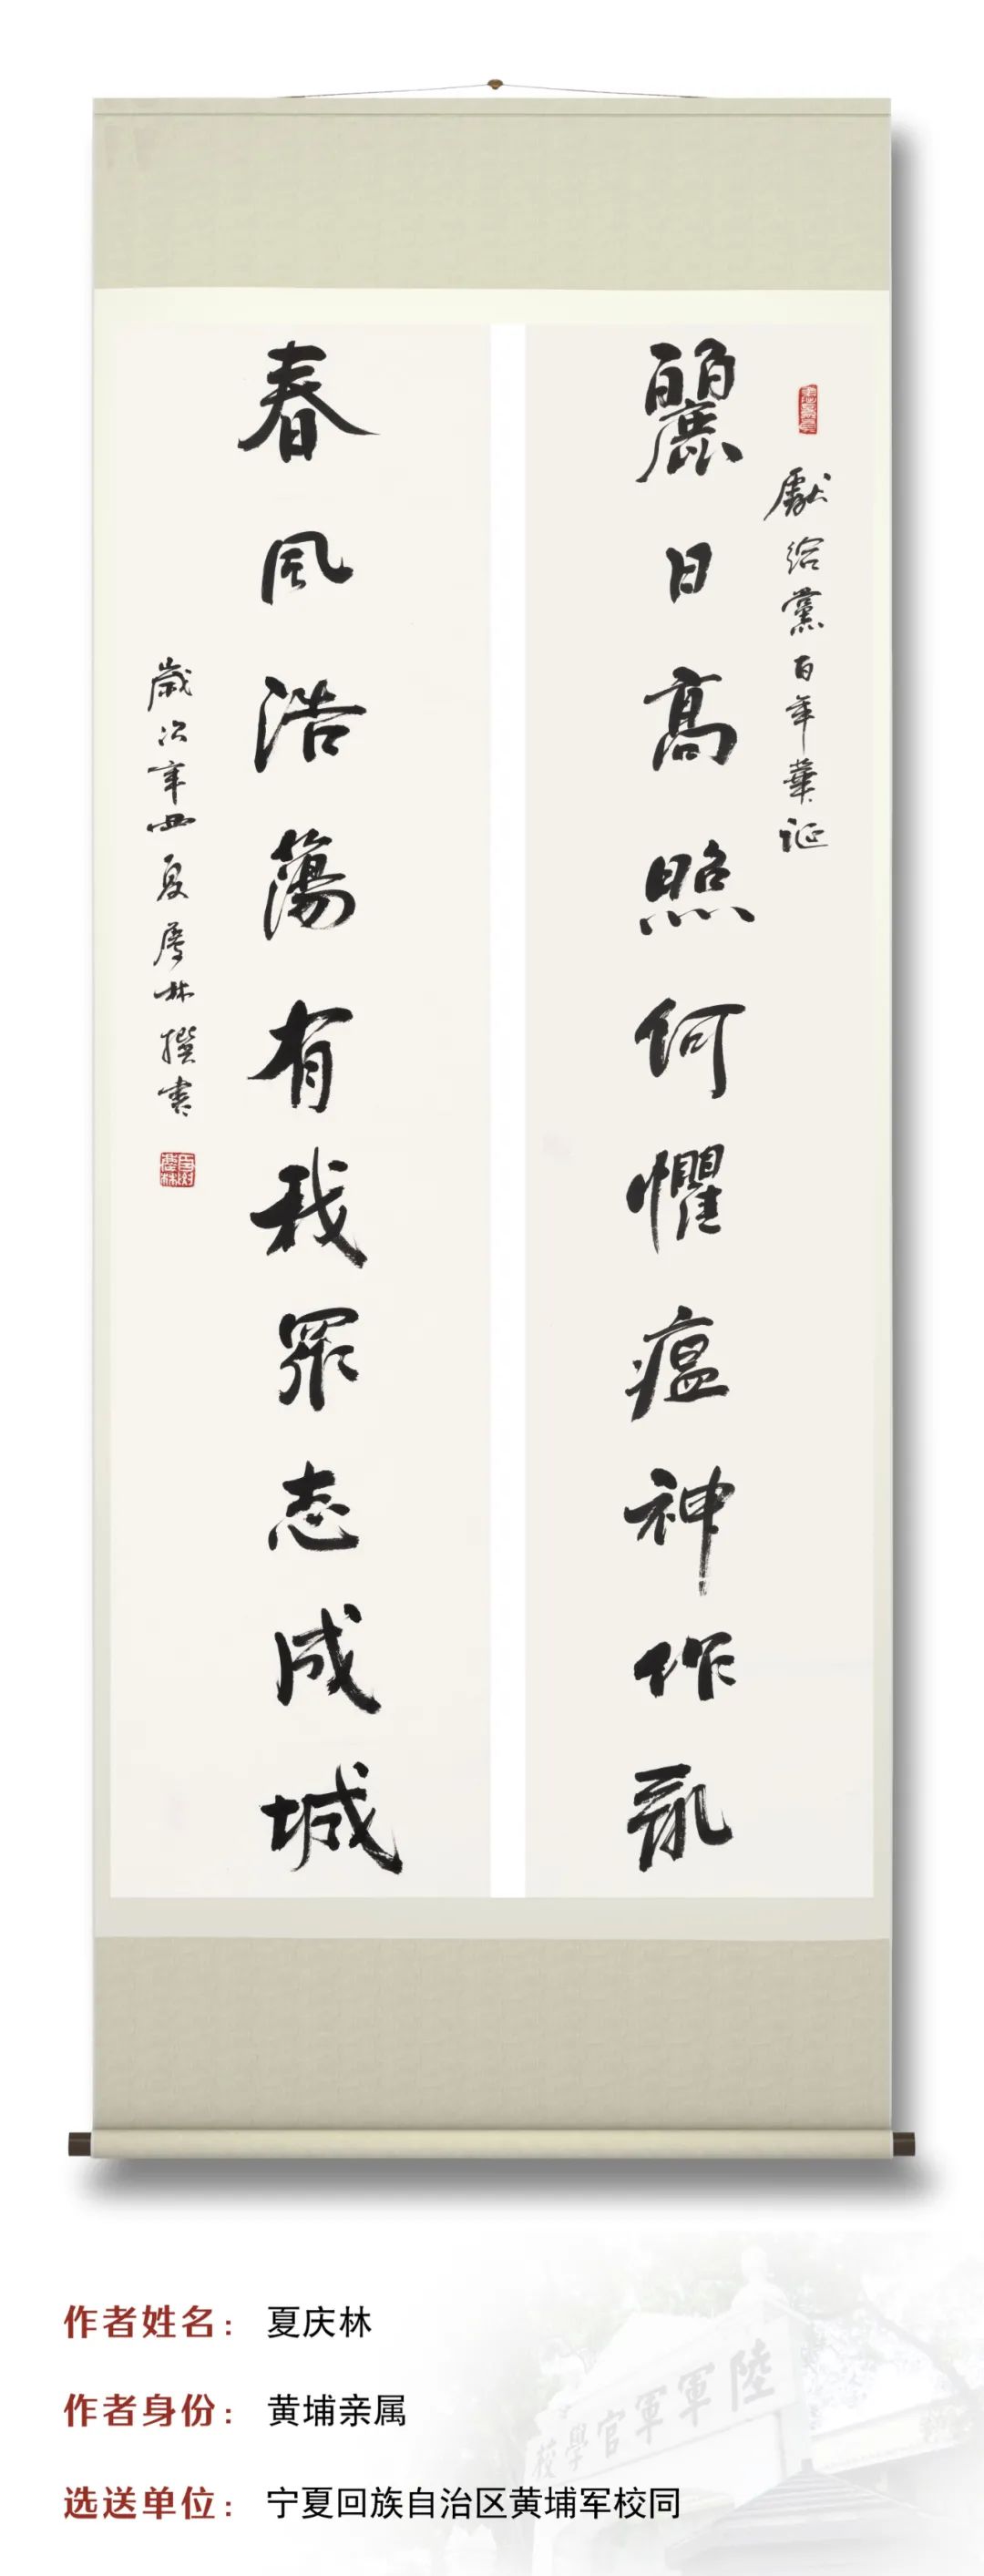 獻給黨百年華誕
麗日高照何懼瘟神作亂
春風浩蕩有我眾志成城
歲次辛丑夏慶林撰書
作者姓名：夏庆林
作者身份：黄埔亲属
选送单位：宁夏回族自治区黄埔军校同
陸軍軍官學校